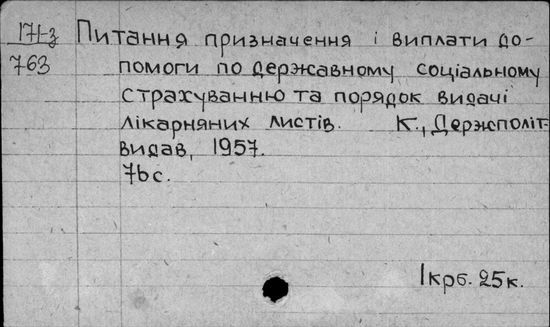 171-з Питання призначення і виплати до-
763 помоги по державному соціальному
страхуванню та порядок видачі
лікарняних листів. К., Держполіт-
видав, 1957.
76с.
1крб. 25к.